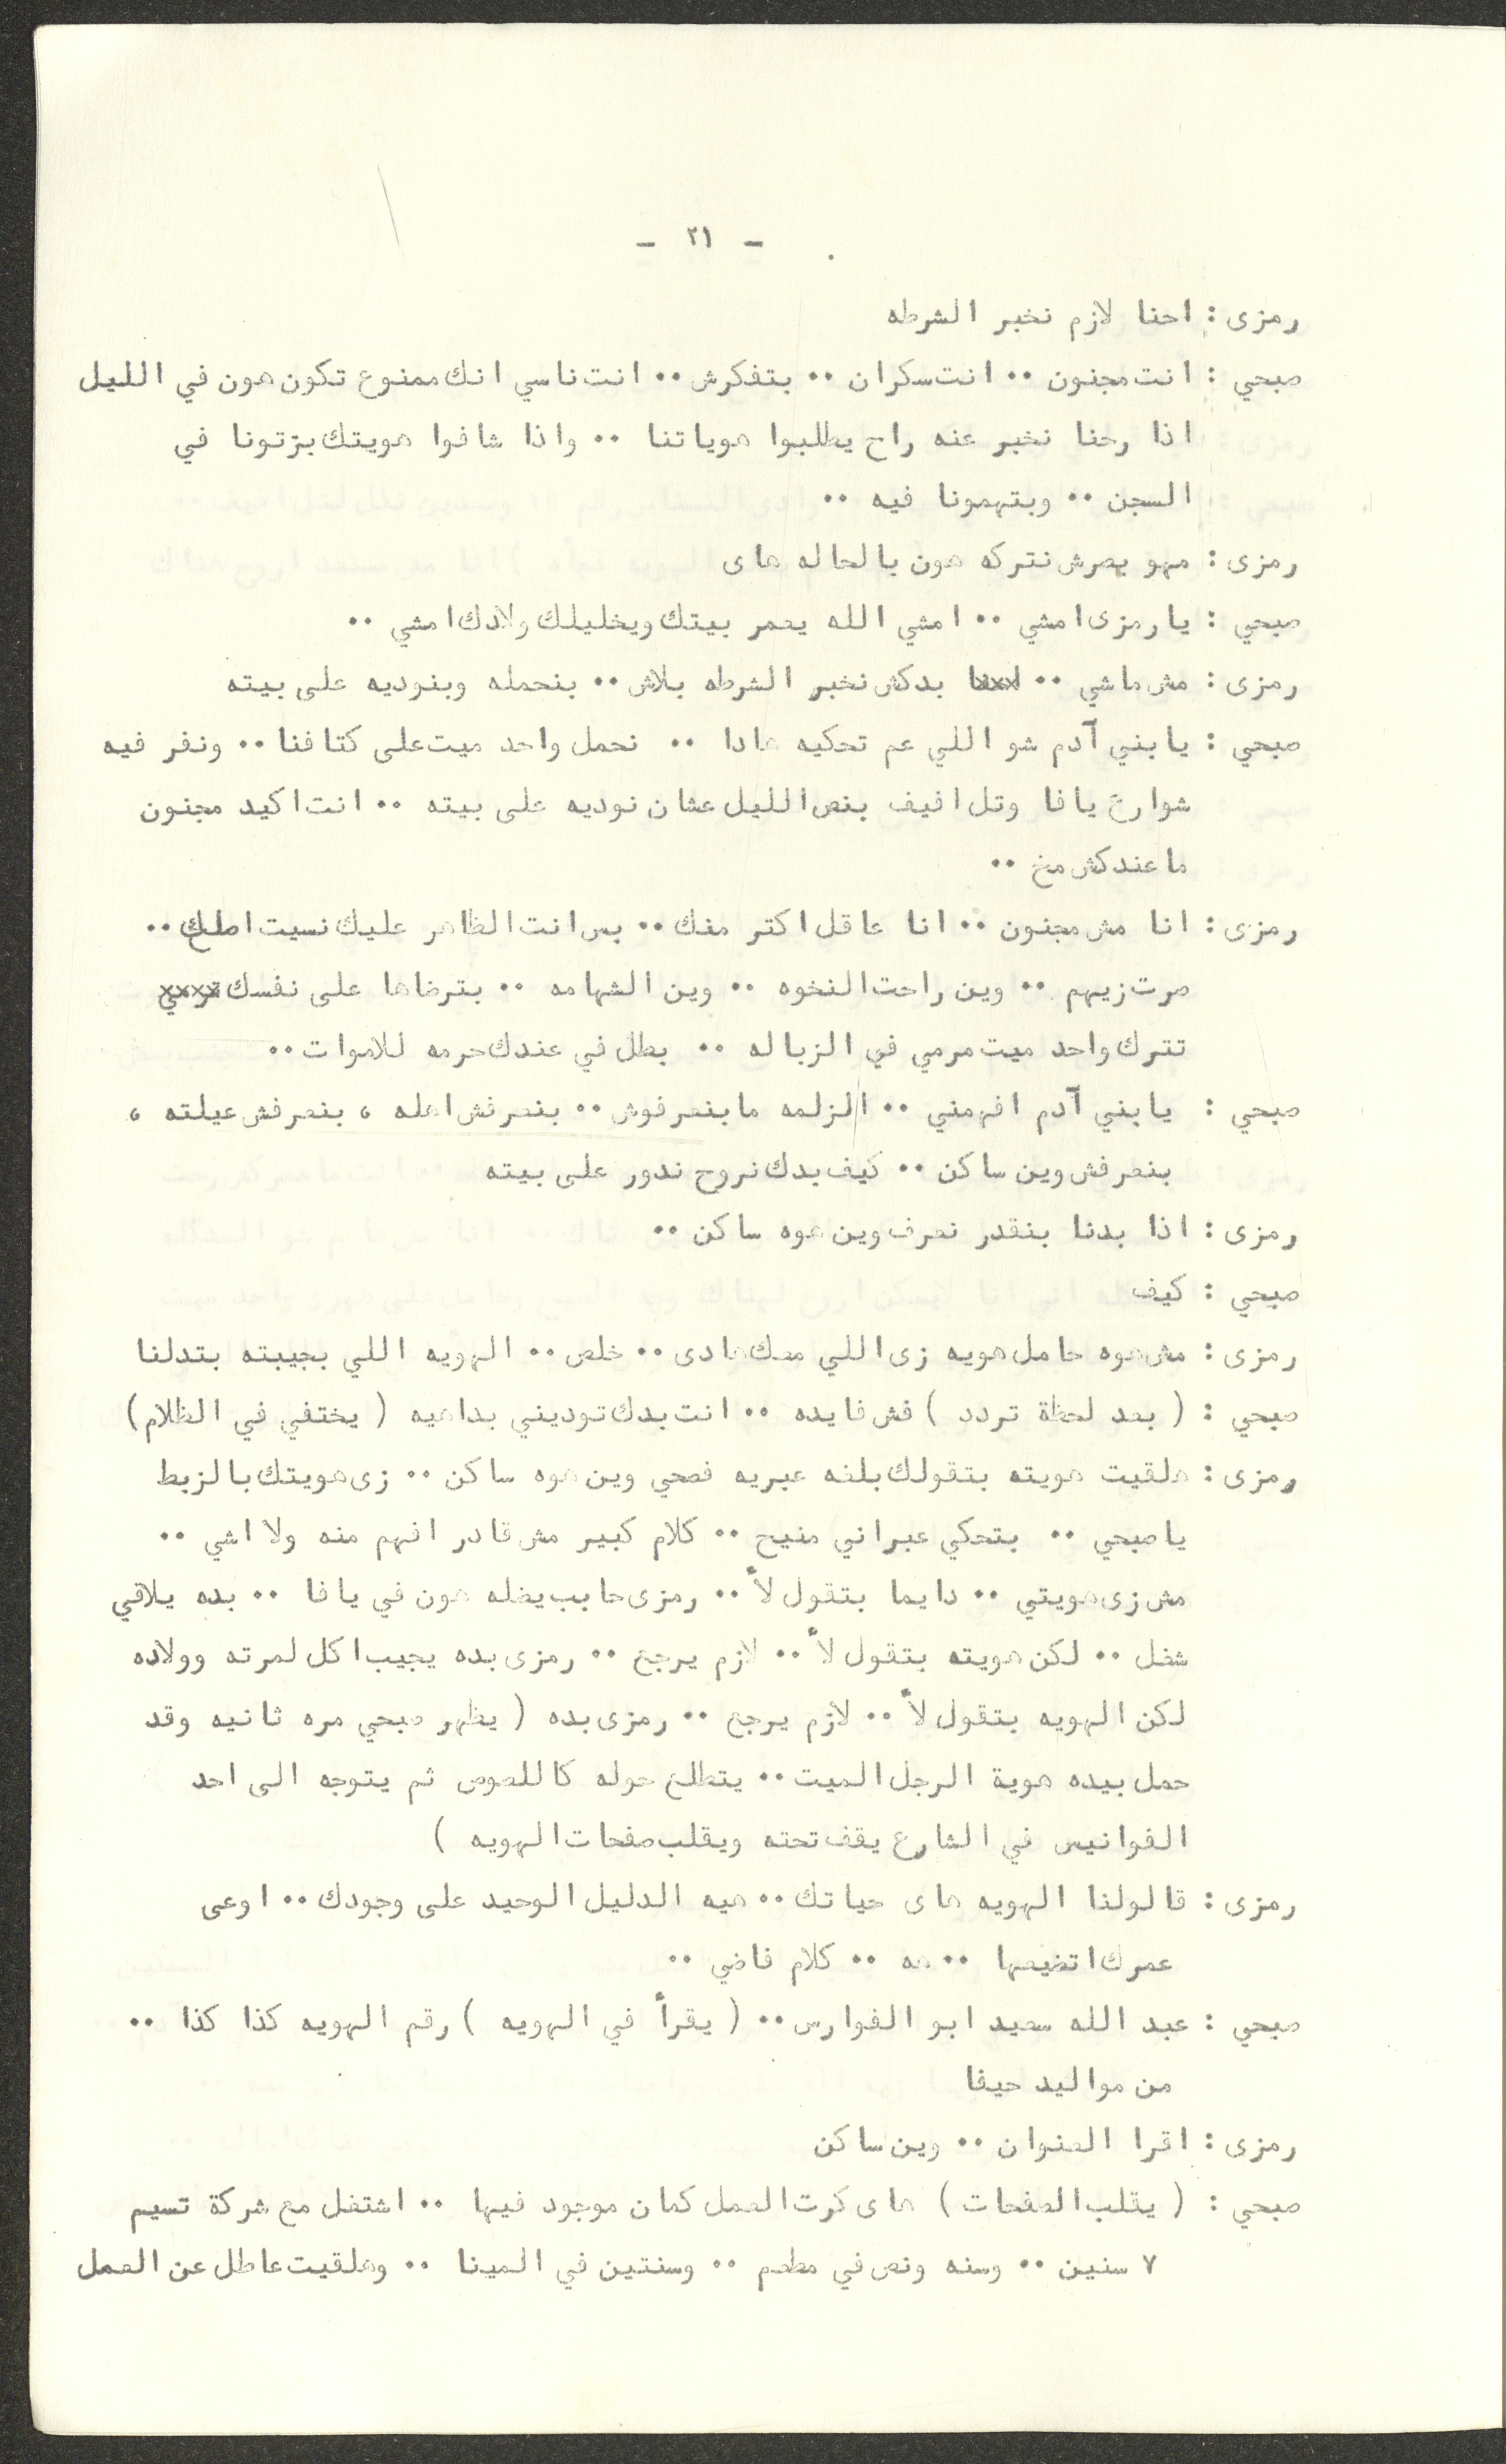 - ٢١ -
رمزى : احنا لازم نخبر الشرطه
صبحي : انت مجنون ٠٠ انت سكران ٠٠ بتفكرش ٠٠ انت ناسي انك ممنوع تكون هون في الليل
اذا رحنا نخبر عنه راح يطلبوا هوياتنا ٠٠ واذا شافوا هويتك بزتونا في
السجن ٠٠ وبتهمونا فيه ٠٠
رمزى : مهو بصرش نتركه هون بالحاله هاى
صبحي : يا رمزى امشي ٠٠ امشي الله يعمر بيتك ويخليلك ولادك امشي ٠٠
رمزى : مش ماشي ٠٠ بدكش نخبر الشرطه بلاش ٠٠ بنحمله وبنوديه على بيته
صبحي : يا بني آدم شو اللي عم تحكيه هادا ٠٠ نحمل واحد ميت على كتافنا ٠٠ ونفر فيه
شوارع يافا وتل افيف بنص الليل عشان نوديه على بيته ٠٠ انت اكيد مجنون
ما عندكش مخ ٠٠
رمزى : انا مش مجنون ٠٠ انا عاقل اكتر منك ٠٠ بس انت الظاهر عليك نسيت اصلك ٠٠
صرت زيهم ٠٠ وين راحت النخوه ٠٠ وين الشهامه ٠٠ بترضاها على نفسك
تترك واحد ميت مرمي في الزباله ٠٠ بطل في عندك حرمه للاموات ٠٠
صبحي : يا بني آدم افهمني ٠٠ الزلمه ما بنعرفوش ٠٠ بنعرفش اهله ، بنعرفش عيلته ،
بنعرفش وين ساكن ٠٠ كيف بدك نروح ندور على بيته
رمزى : اذا بدنا بنقدر نعرف وين هوه ساكن ٠٠
صبحي : كيف
رمزى : مش هوه حامل هويه زى اللي معك هادى ٠٠ خلص ٠٠ الهويه اللي بجيبته بتدلنا
صبحي : ( بعد لحظة تردد ) فش فايده ٠٠ انت بدك توديني بداهيه ( يختفي في الظلام )
رمزى : هلقيت هويته بتقولك بلغه عبريه فصحي وين هوه ساكن ٠٠ زى هويتك بالزبط
يا صبحي ٠٠ بتحكي عبراني منيح ٠٠ كلام كبير مش قادر افهم منه ولا اشي ٠٠
مش زى هويتي ٠٠ دايما بتقول لأ ٠٠ رمزى حابب يضله هون في يافا ٠٠ بده يلاقي
شغل ٠٠ لكن هويته بتقول لأ ٠٠ لازم يرجع ٠٠ رمزى بده يجيب اكل لمرته وولاده
لكن الهويه بتقول لأ ٠٠ لازم يرجع ٠٠ رمزى بده ( يظهر صبحي مره ثانيه وقد
حمل بيده هوية الرجل الميت ٠٠ يتطلع حوله كاللصوص ثم يتوجه الى احد
الفوانيس في الشارع يقف تحته ويقلب صفحات الهويه )
رمزى : قالولنا الهويه هاى حياتك ٠٠ هيه الدليل الوحيد على وجودك ٠٠ اوعى
عمرك اتضيعها ٠٠ هه ٠٠ كلام فاضي ٠٠
صبحي : عبد الله سعيد ابو الفوارس ٠٠ ( يقرأ في الهويه ) رقم الهويه كذا كذا ٠٠
من مواليد حيفا
رمزى : اقرا العنوان ٠٠ وين ساكن
صبحي : ( يقلب الصفحات ) هاى كرت العمل كمان موجود فيها ٠٠ اشتغل مع شركة تسيم
٧ سنين ٠٠ وسنه ونص في مطعم ٠٠ وسنتين في المينا ٠٠ وهلقيت عاطل عن العمل